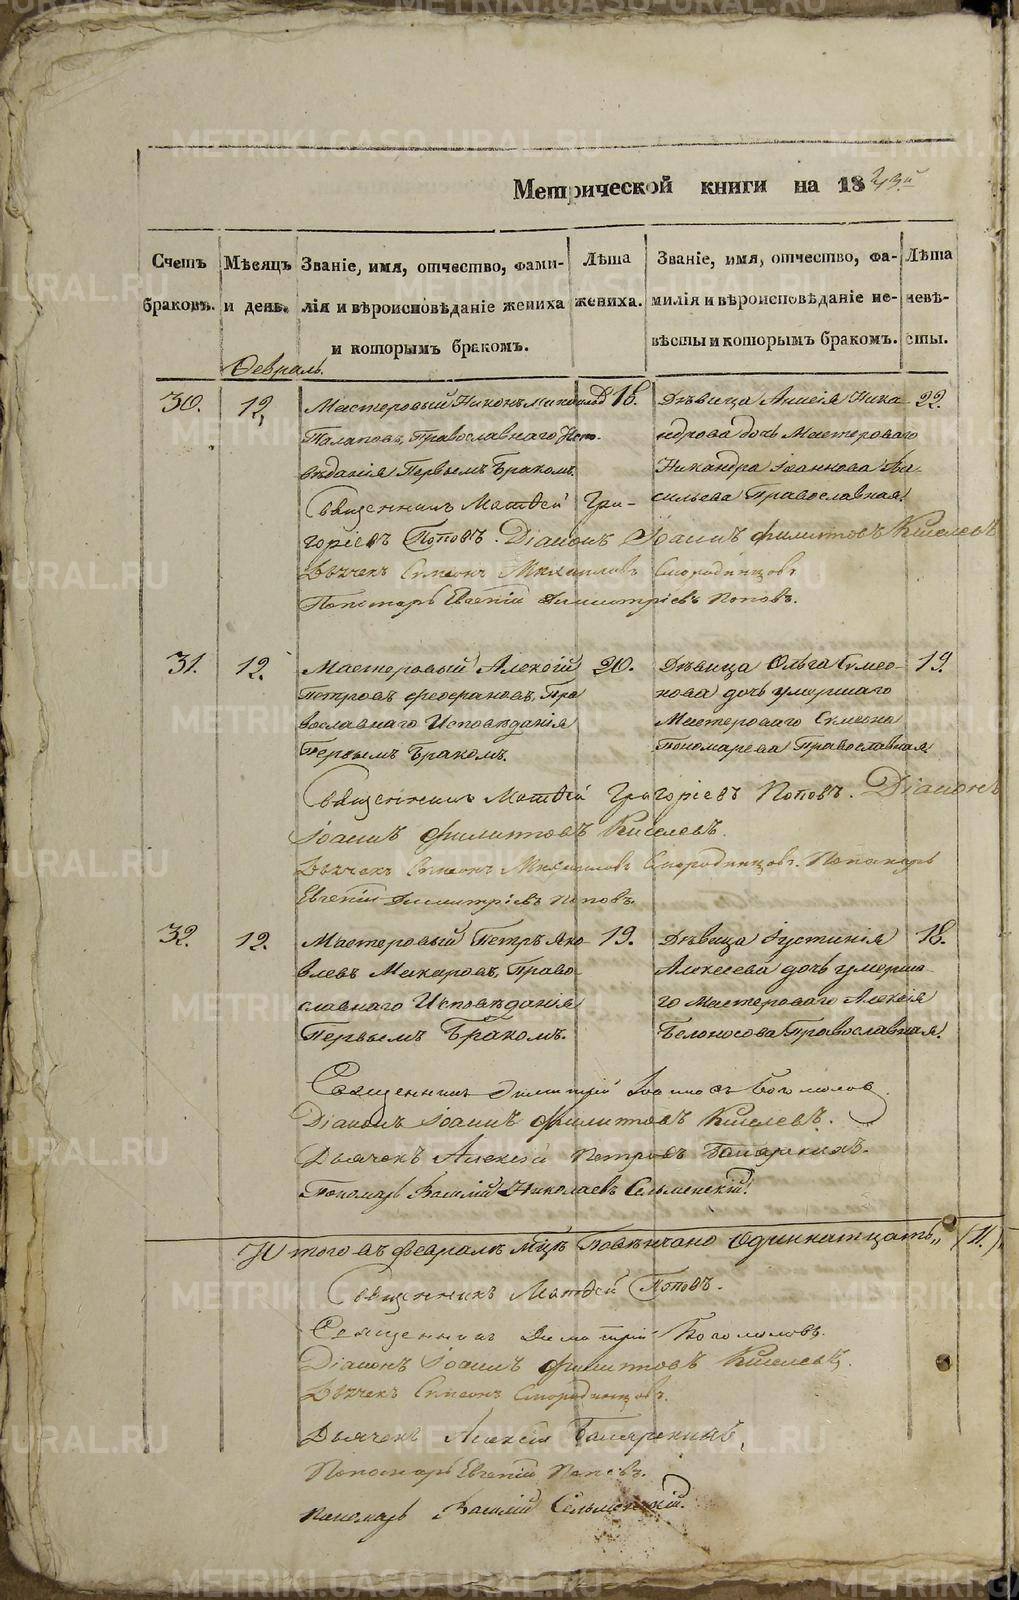 METRIKI.GASO-URAL.RU
Метрической книги на 1843й
Счетъ браковъ.
Мѣсяцъ и день.
Званіе, имя, отчество, фами-
лія и вѣроисповѣданіе жениха
и которымъ бракомъ.
Лѣта
жениха.
Званіе, имя, отчество, фа-
милія и вѣроисповѣданіе не-
вѣсты и которымъ бракомъ.
Лѣта
невѣ-
сты.
Февраль.
30.
12.
Мастеровый Никонъ
Православнаго Испо-
вѣданія Первымъ Бракомъ.
18.
Дѣвица Анисія Ника-
ндрова дочь Мастероваго
Никандра Іванкова Ва-
сильева Православная.
22.
Священникъ Матѳей Гри-
горіевъ Поповъ. Діаконъ Іоаннъ Филиповъ Киселевъ
Дьячекъ Симеонъ Михаиловъ Смородинцовъ
Пономарь Евгеній Димитріевъ Поповъ.
31.
12.
Мастеровый Алексій
Петровъ Феофановъ, Пра
вославнаго Исповѣданія
Первымъ Бракомъ.
20.
Дѣвица Ольга Симео-
нова дочь умершаго
Мастероваго Симеона
Пономарева Православная.
19.
Священникъ Матѳей Григоріевъ Поповъ. Діаконъ
Іоаннъ Филиповъ Киселевъ.
Дьячекъ Симеонъ Михаиловъ Смородинцовъ. Пономарь
Евгеній Димитріевъ Поповъ.
32.
12.
Мастеровый Петръ Яко
влевъ Макаровъ, Право
славнаго Исповѣданія
Первымъ Бракомъ.
19.
Дѣвица Іустинія
Алексеева дочь умерша-
го Мастероваго Алексія
Белоносова Православная.
18.
Священникъ Димитрій Богомоловъ.
Діаконъ Іоаннъ Филиповъ Киселевъ.
Дьячекъ Алексій Петровъ
Пономарь Василій Николаевъ Сельменскій.
Итого въ февралѣ мцѣ Повѣнчано Одиннатцать„ (11.)
Священникъ Матѳей Поповъ.
Священникъ Димитрій Богомоловъ.
Діаконъ Іоаннъ Филиповъ Киселевъ.
Дьячекъ Симеонъ Смородинцовъ.
Дьячекъ Алексій
Пономарь Евгеній Поповъ.
Пономарь Василій Сельменскій.